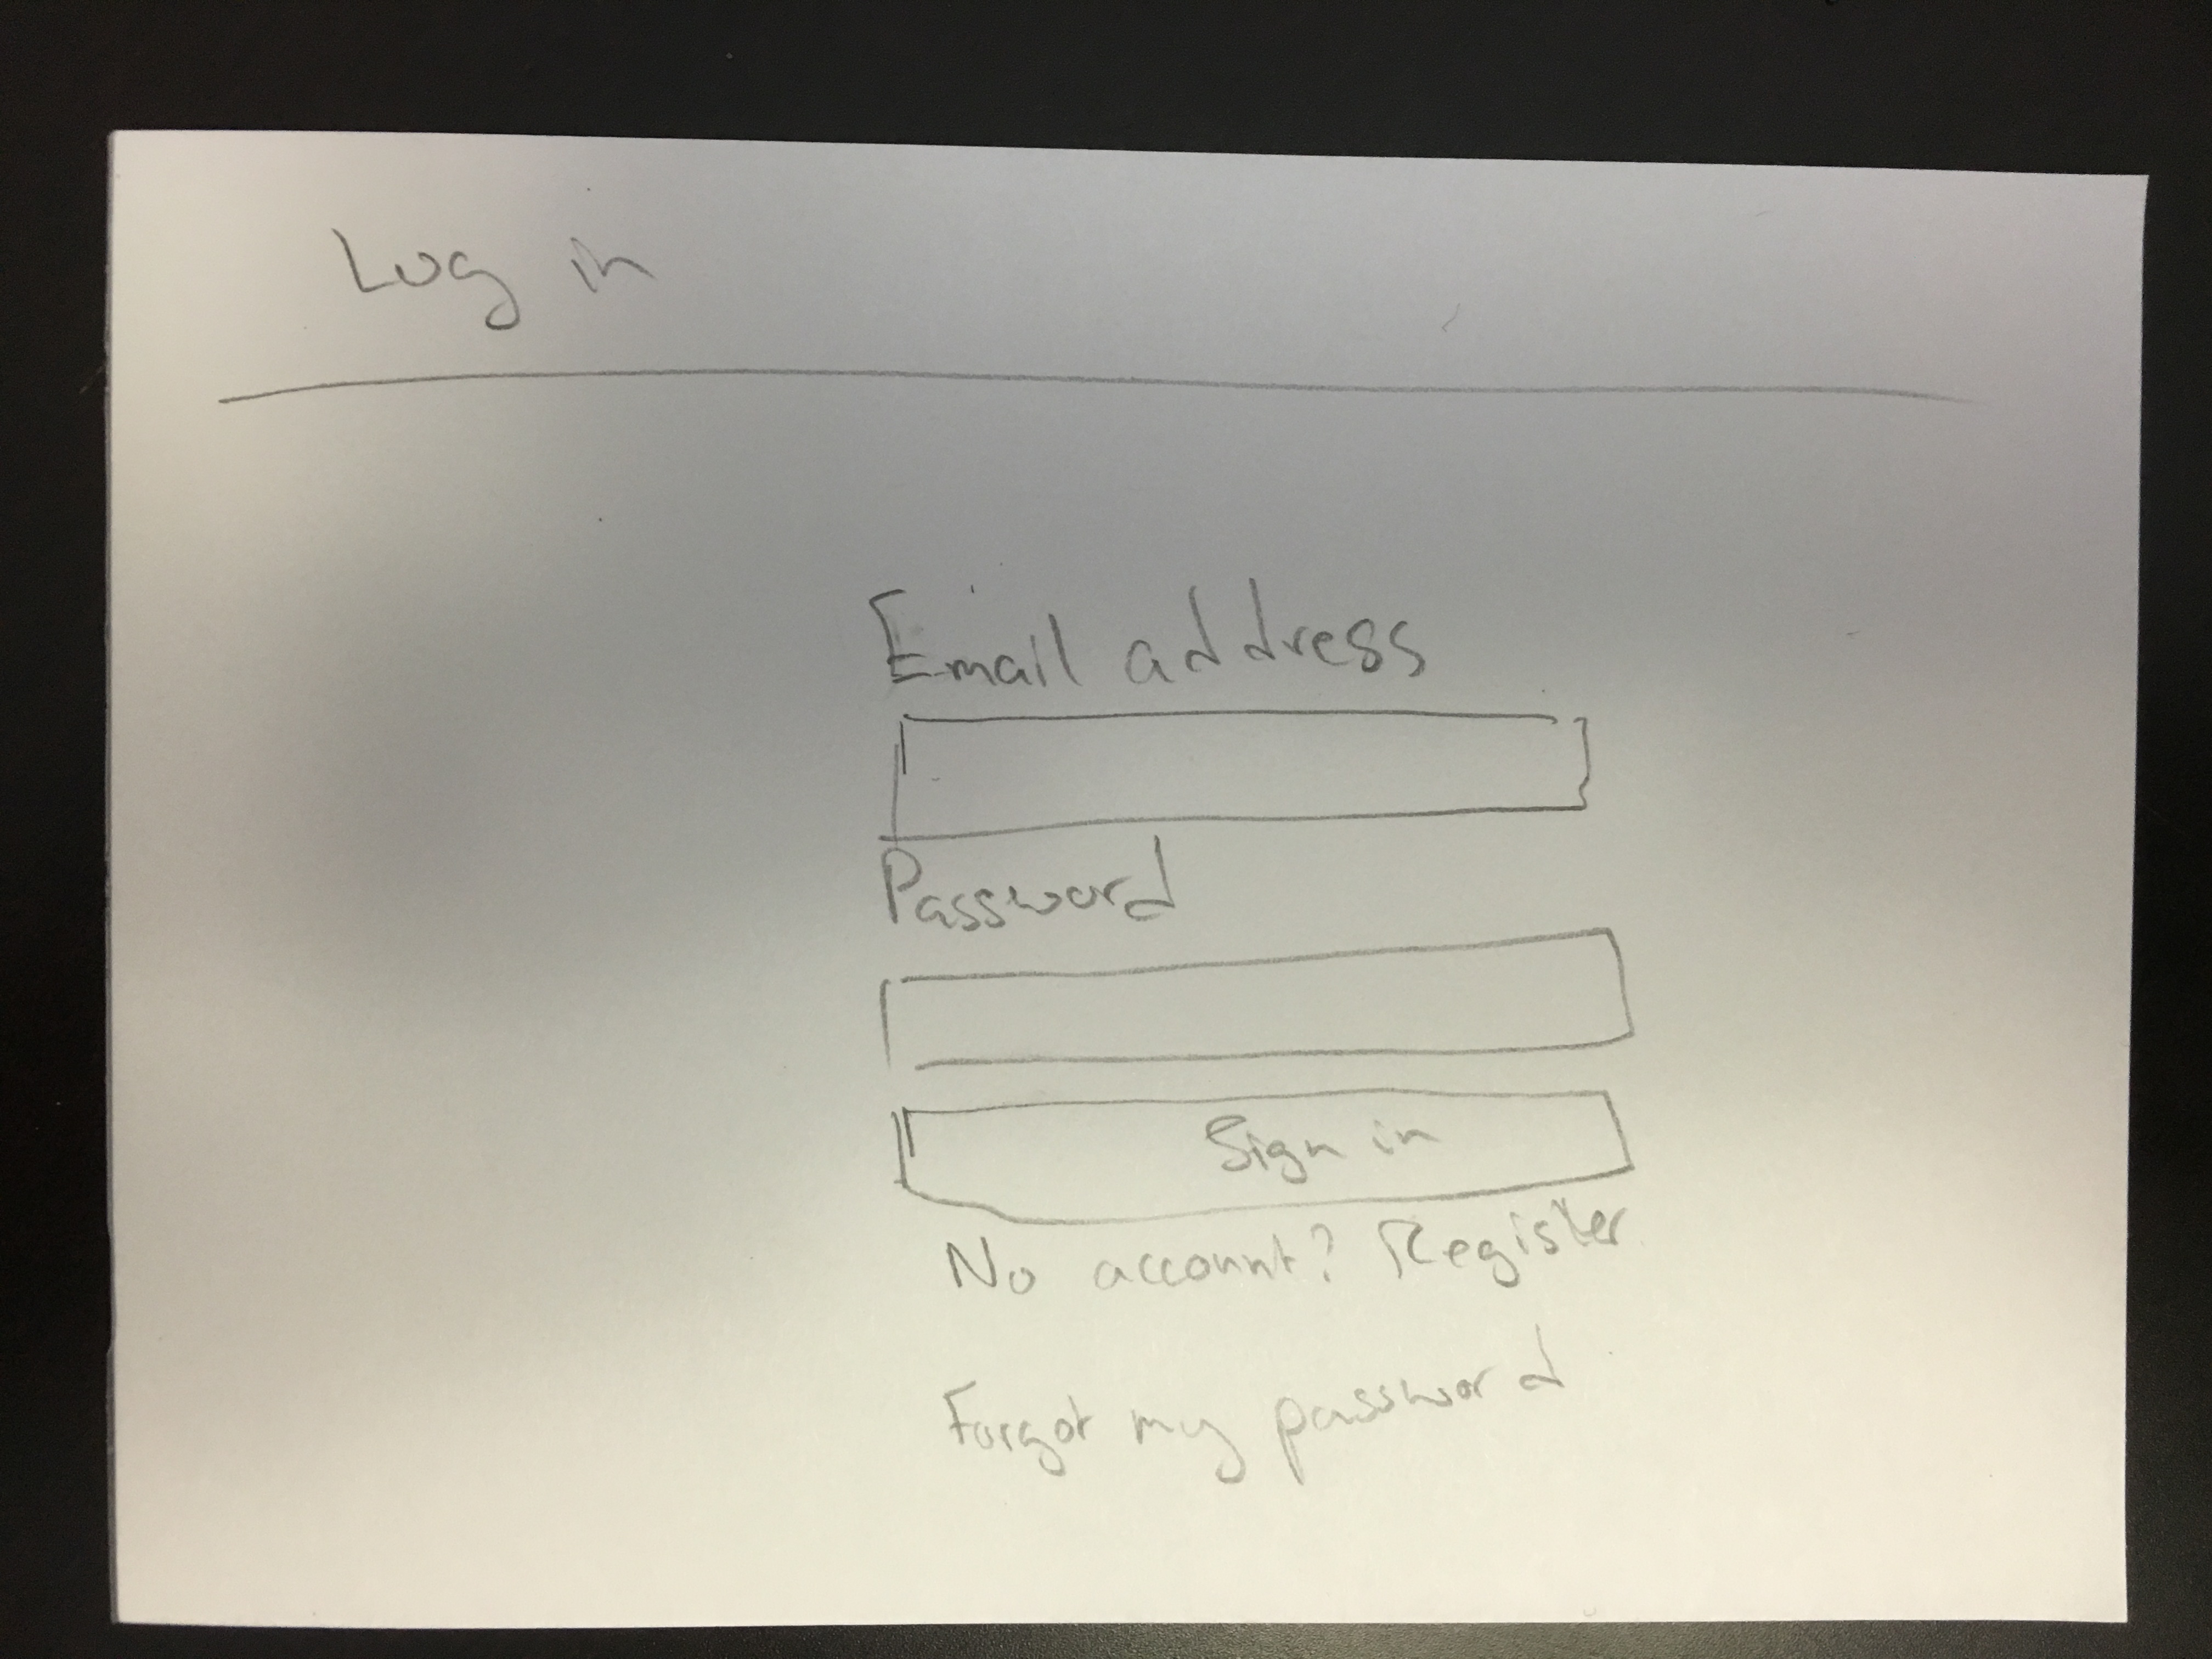 Log in
Email address
Password
Sign in
No account? Register
Forgot my password